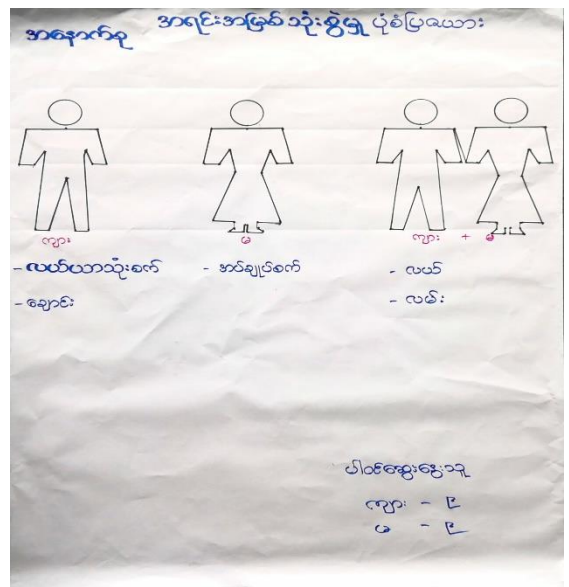 အနောက်စု
အရင်းအမြစ် သုံးစွဲမှု ပုံစံပြဇယား
ကျား
မ
ကျား + မ
- လယ်ယာသုံးစက်
- ချောင်း
- အပ်ချုပ်စက်
- လယ်
- လမ်း
ပါဝင်ဆွေးနွေးသူ
ကျား - ၉
မ - ၉